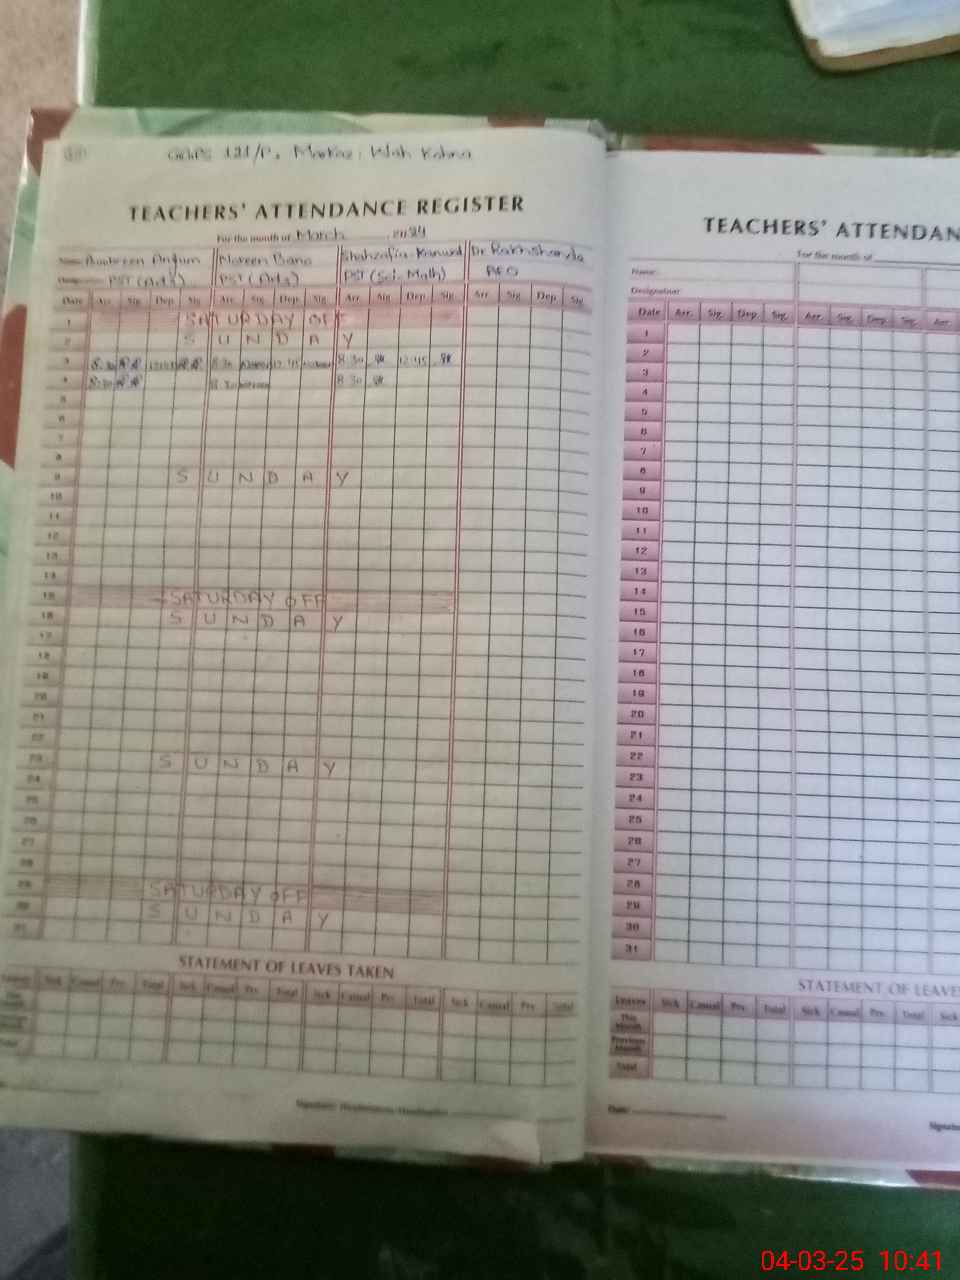 GGPS 121/P, Markaz: Wah Kahna
TEACHERS' ATTENDANCE REGISTER
For the month of March
Name: Anjum Bano Shahzadia Kanwal Dr. Rakhshanda
PST (Arts) PST (Arts) PST (Sci. Math) AEO
Date Arr. Sig. Dep. Sig. Arr. Sig. Dep. Sig. Arr. Sig. Dep. Sig. Arr. Sig. Dep. Sig.
1 SATURDAY OFF
2 SUNDAY
3 8:30 8:30 12:45 8:30 12:45
4 8:30 8:30 8:30
5
6
7
8
9 SUNDAY
10
11
12
13
14
15 SATURDAY OFF
16 SUNDAY
17
18
19
20
21
22
23 SUNDAY
24
25
26
27
28
29 SATURDAY OFF
30 SUNDAY
31
STATEMENT OF LEAVES TAKEN
Leaves Sick Casual Prv. Total Sick Casual Prv. Total Sick Casual Prv. Total Sick Casual Prv. Total
This Month
Previous Month
Total
Signature Headmistress/Headmaster
TEACHERS' ATTENDAN
For the month of
Name:
Designation:
Date Arr. Sig. Dep. Sig. Arr. Sig. Dep. Sig. Arr.
1
2
3
4
5
6
7
8
9
10
11
12
13
14
15
16
17
18
19
20
21
22
23
24
25
26
27
28
29
30
31
STATEMENT OF LEAVES
Leaves Sick Casual Prv. Total Sick Casual Prv. Total Sick
This Month
Previous Month
Total
Date:
Signatu
04-03-25 10:41